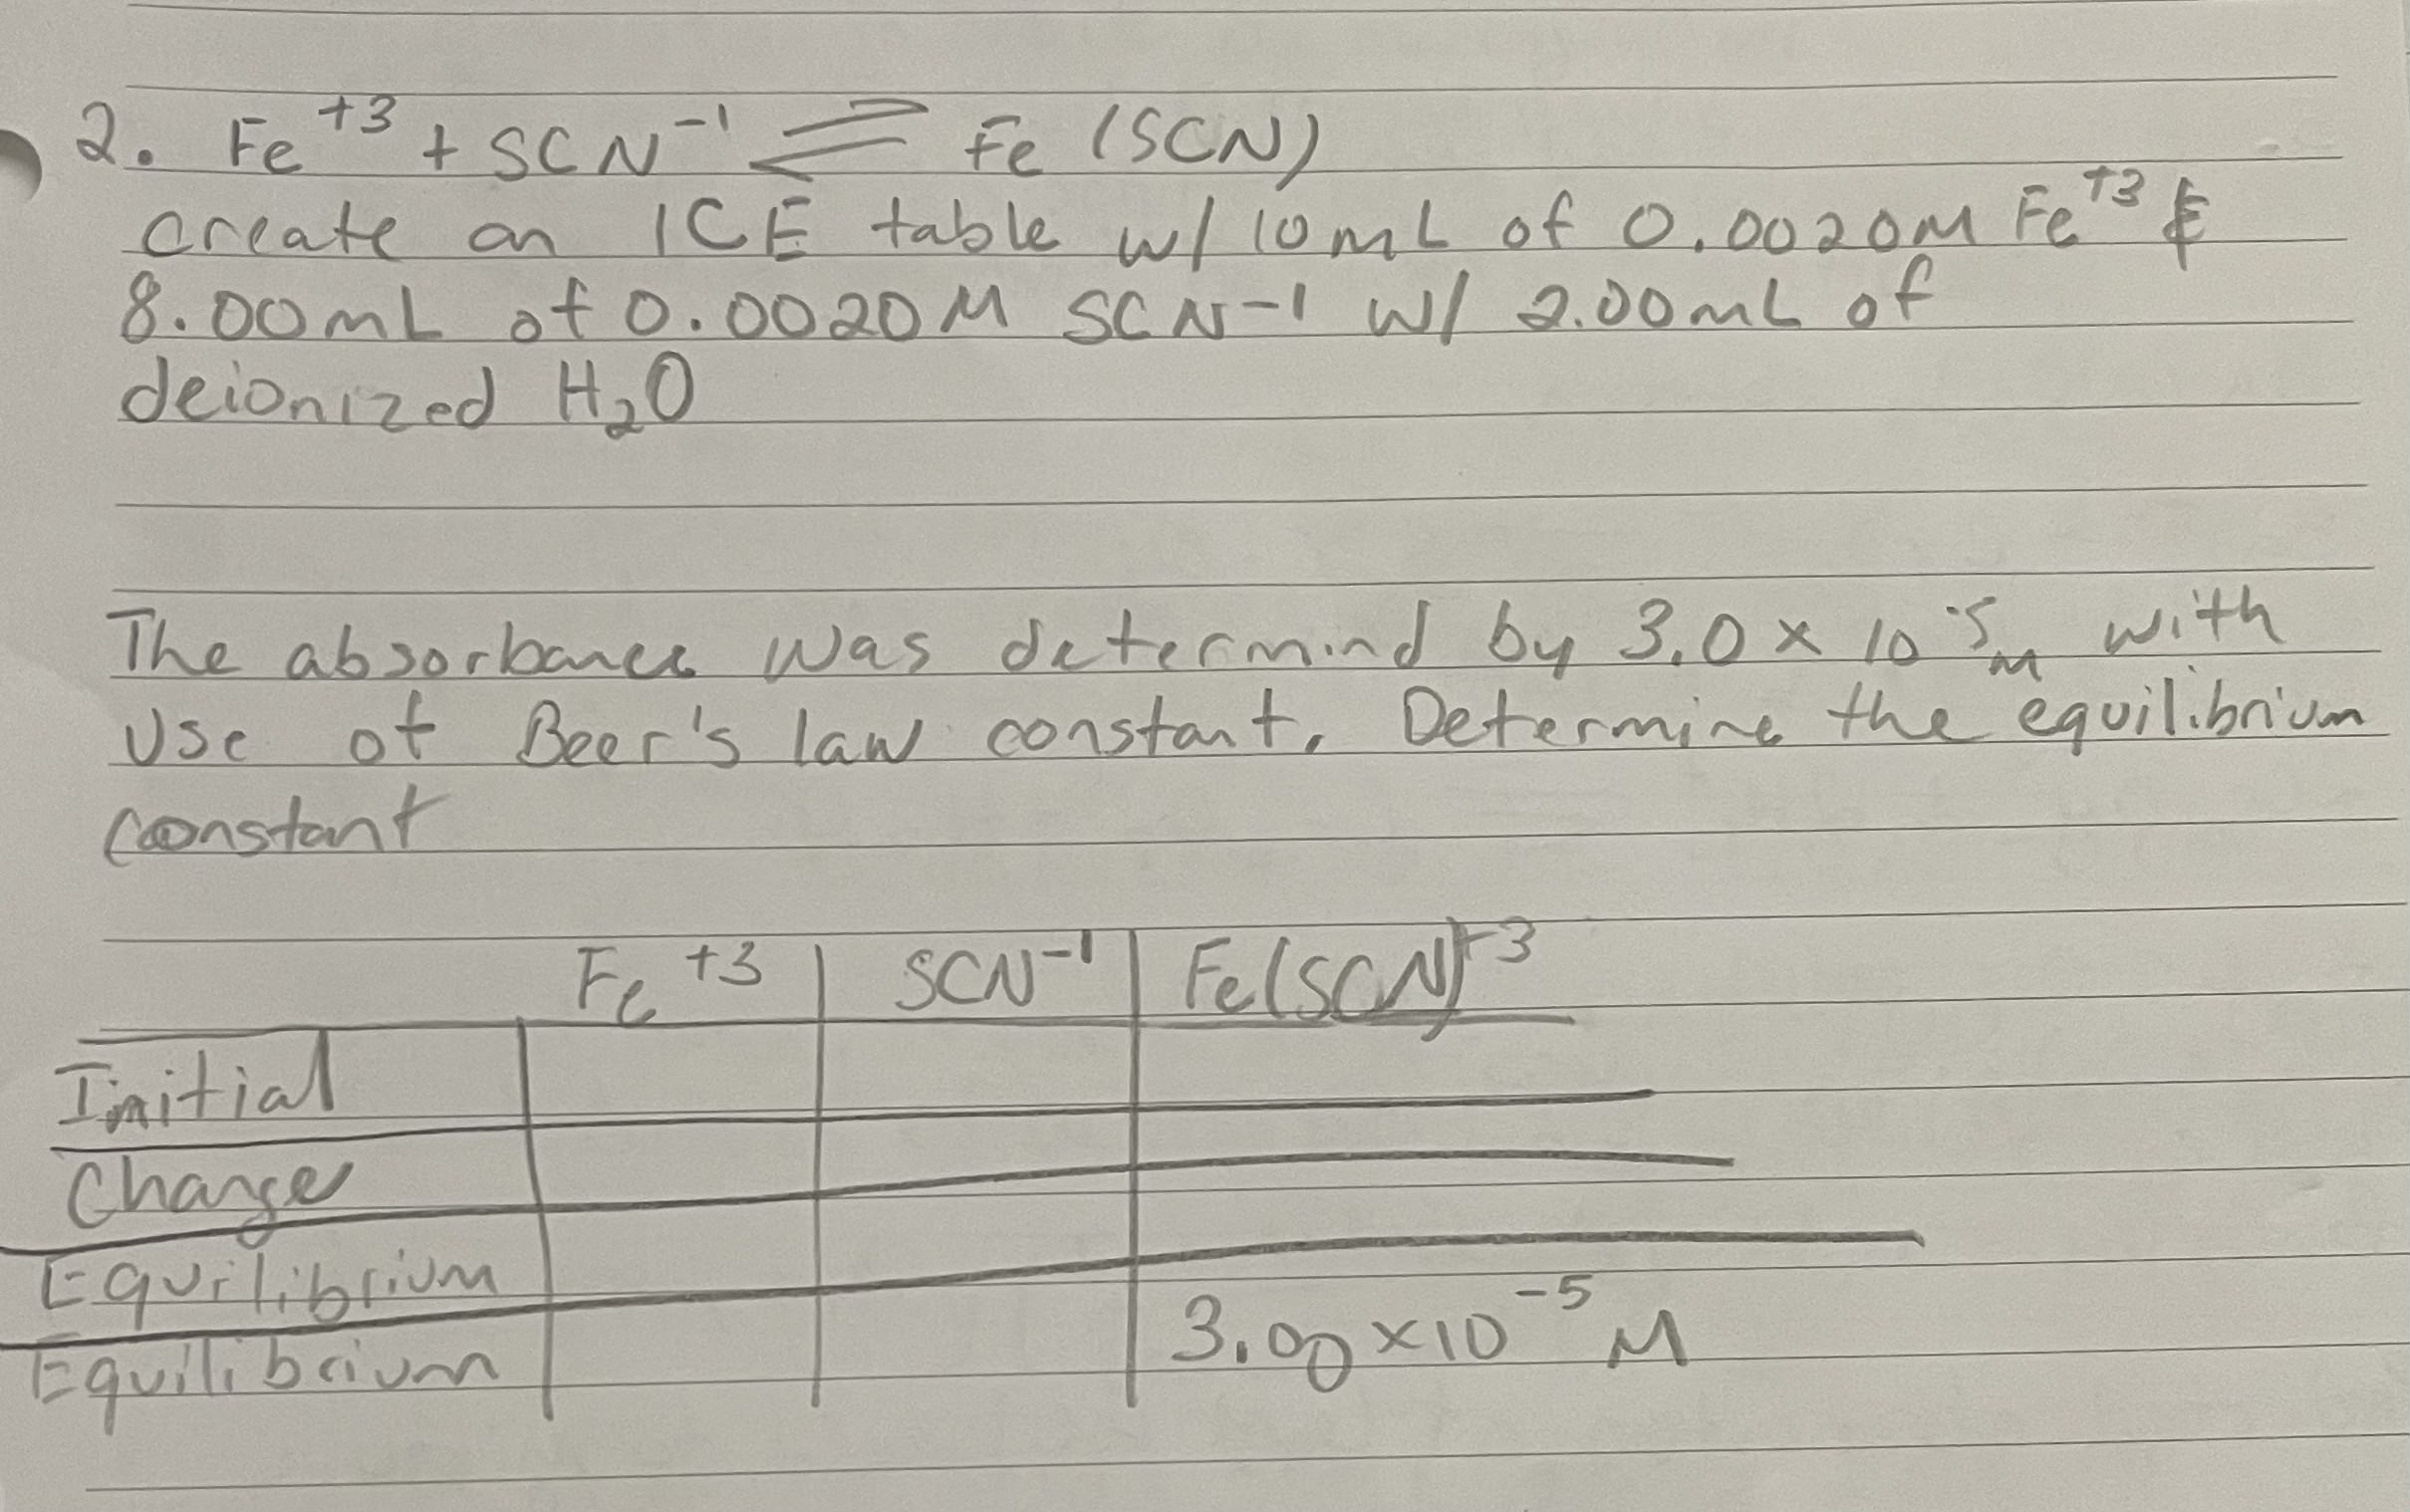 2. Fe⁺³ + SCN⁻¹ ⇌ Fe (SCN)
create an ICE table w/ 10 mL of 0.0020M Fe⁺³ &
8.00mL of 0.0020M SCN-1 w/ 2.00mL of
deionized H₂O
The absorbance was determind by 3.0 x 10⁻⁵M with
use of Beer's law constant. Determine the equilibrium
constant
Fe⁺³ SCN⁻¹ Fe(SCN)⁺³
Initial
Change
Equilibrium
Equilibrium 3.00 x 10⁻⁵ M